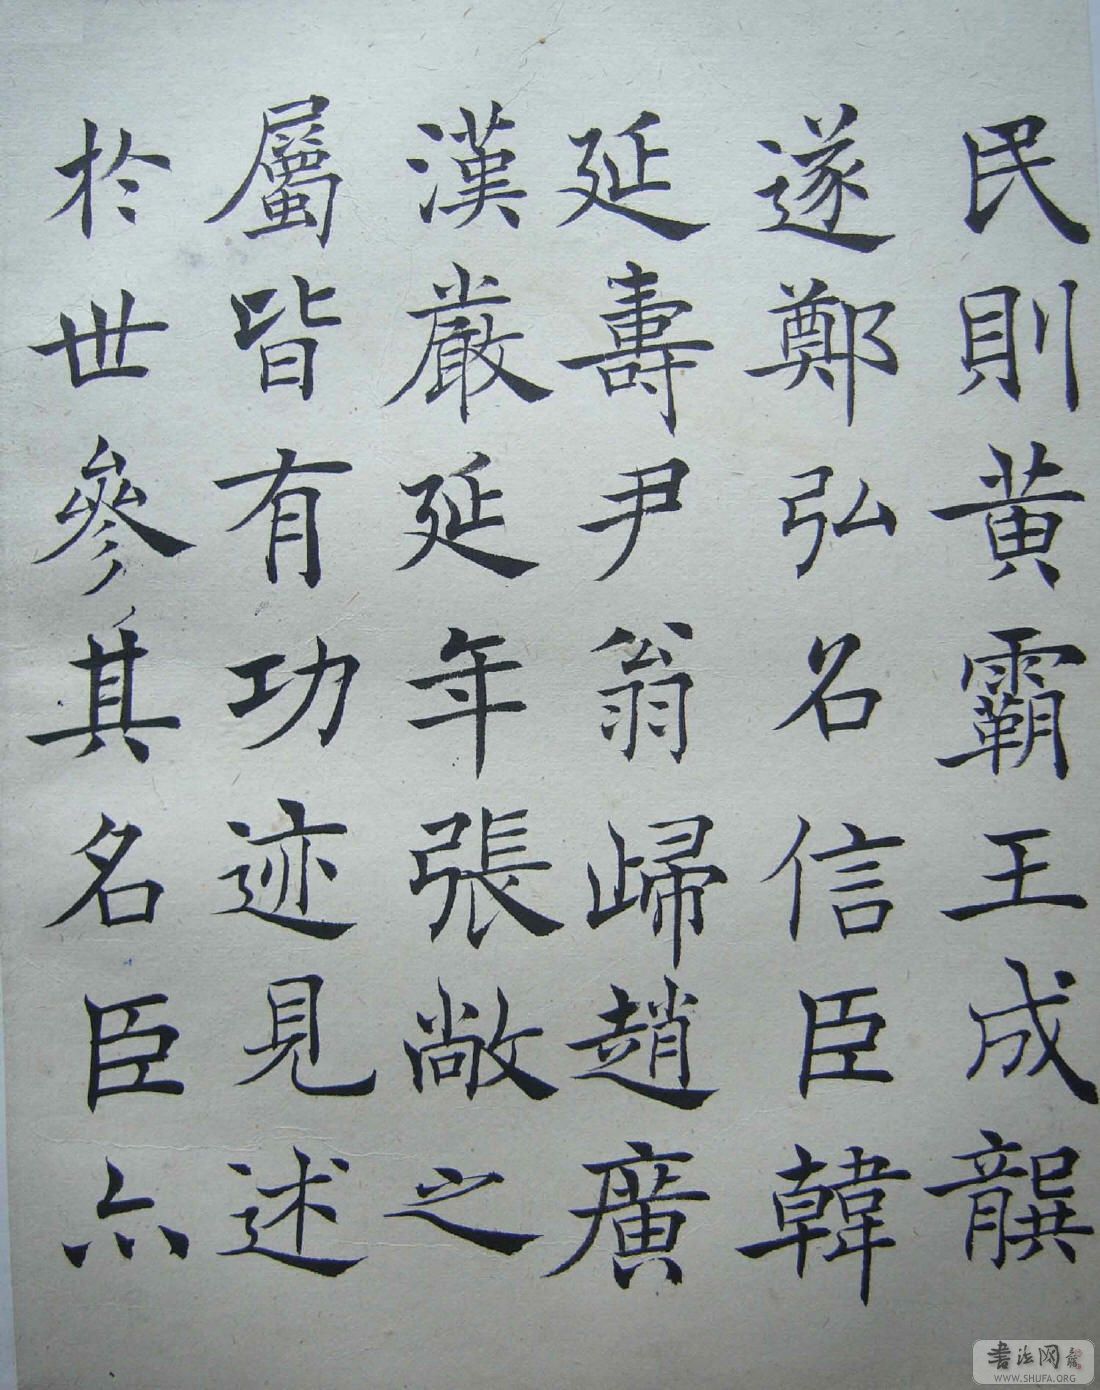 民則黃霸王成龔
遂鄭弘名信臣韓
延壽尹翁歸趙廣
漢嚴延年張敞之
屬皆有功迹見述
於世參其名臣亦
書法网
WWW.SHUFA.ORG